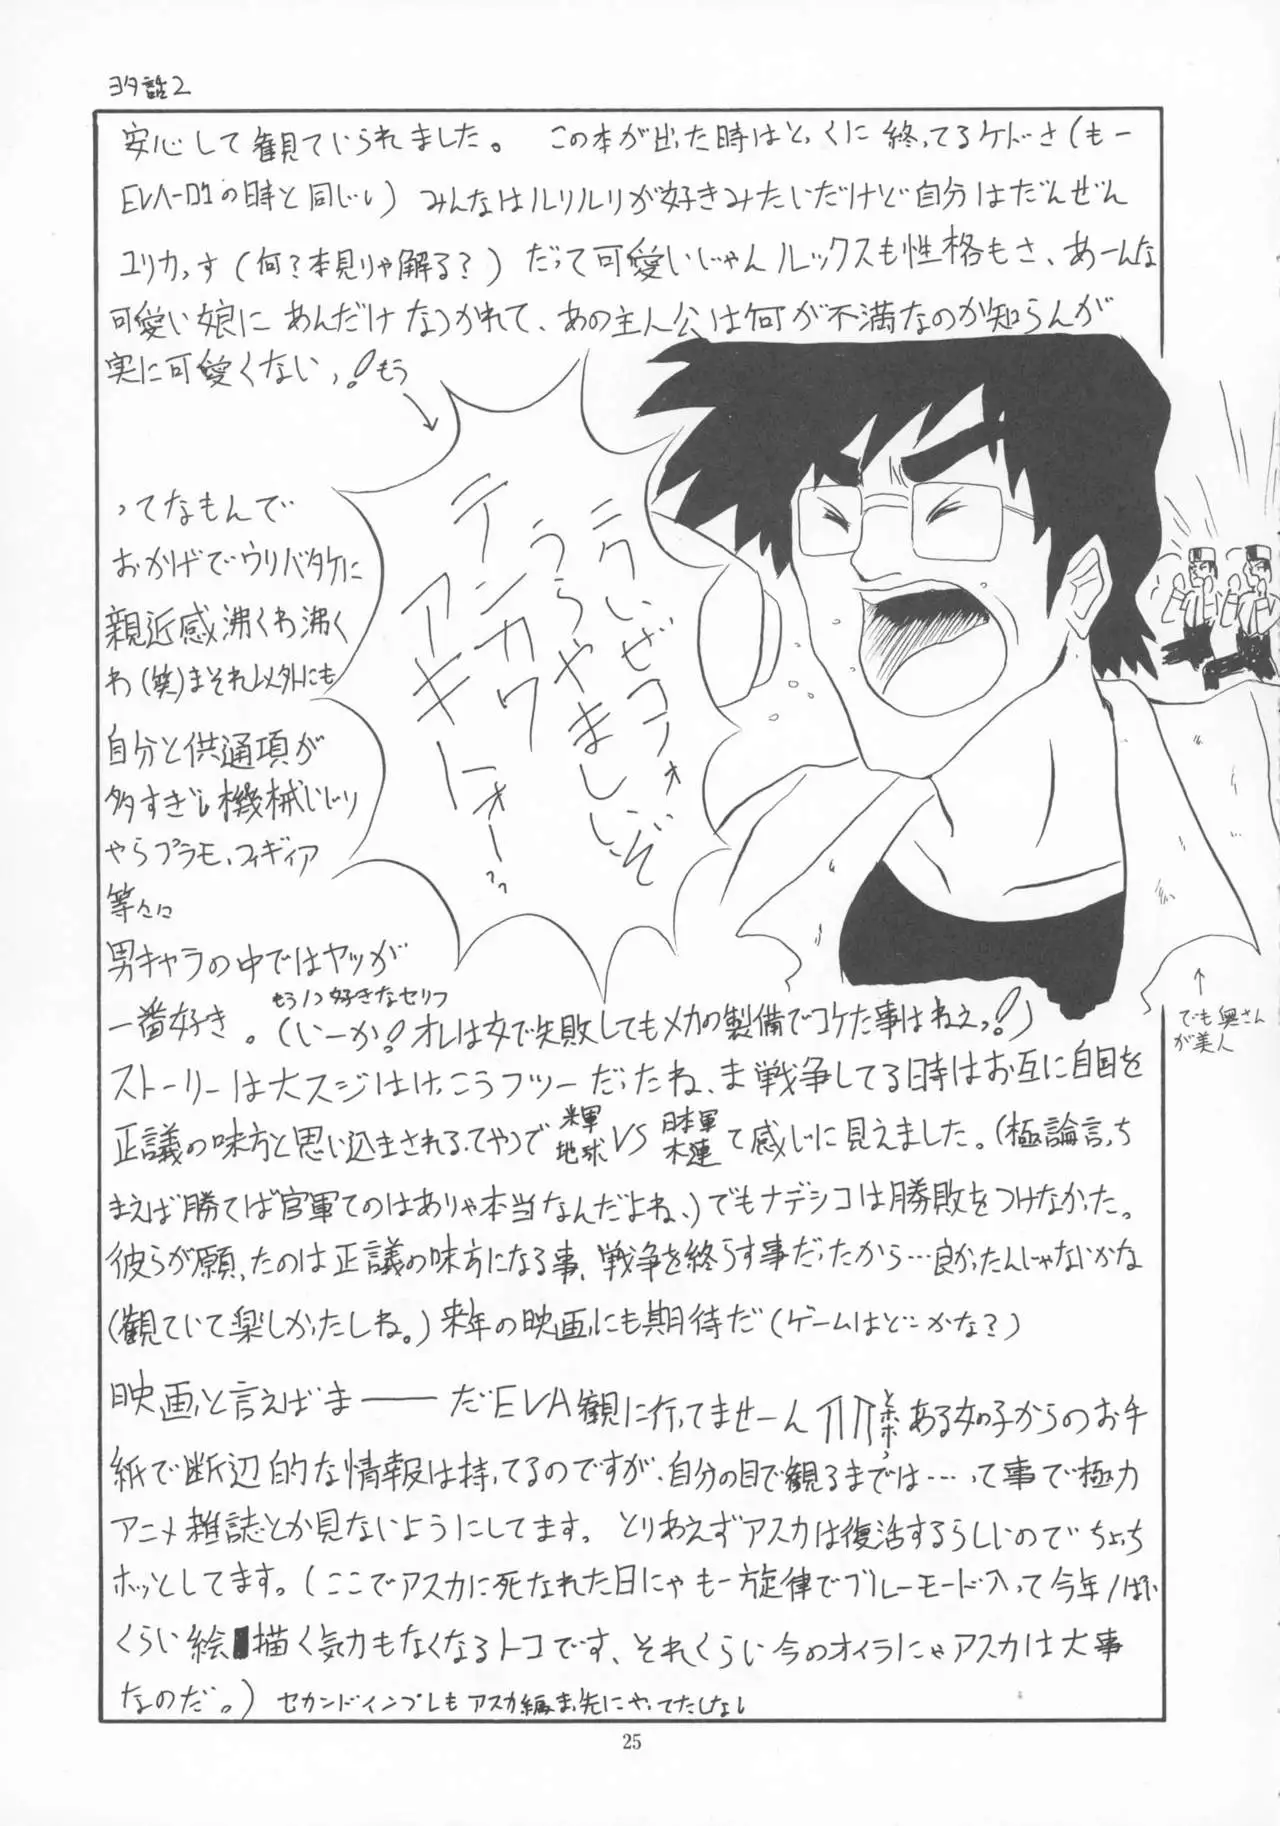 ヨタ話2
安心して観ていられました。 この本が出た時はとっくに終ってるケドさ（もー
EVA-01の時と同じい）みんなはルリルリが好きみたいだけど自分はだんぜん
ユリカっす（何？本見りゃ解る？）だって可愛いじゃんルックスも性格もさ、あーんな
可愛い娘にあんだけなつかれて、あの主人公は何が不満なのか知らんが
実に可愛くないっ！もう
ニクいぜコノォ
うらやましいぞ
テンカワ
アキトォーっっ
ってなもんで
おかげでウリバタケに
親近感沸くわ沸く
わ（笑）まそれ以外にも
自分と供通項が
多すぎし機械いじり
やらプラモ、フィギィア
等々に
男キャラの中ではヤツが
一番好き。（いーか！オレは女で失敗してもメカの製備でコケた事はねぇっ！）
もう1つ好きなセリフ
↑
でも奥さん
が美人
ストーリーは大スジはけっこうフツーだったね、ま戦争してる日時はお互に自国を
正議の味方と思い込まされるってやつで 米軍 地球 VS 日本軍 木連 て感じに見えました。（極論言っち
まえば勝てば官軍てのはありゃ本当なんだよね、）でもナデシコは勝敗をつけなかった。
彼らが願ったのは正議の味方になる事、戦争を終らす事だったから…良かったんじゃないかな
（観ていて楽しかったしね。）来年の映画にも期待だ（ゲームはどこかな？）
映画と言えばま――だEVA観に行ってませーん トホホっ ある女の子からのお手
紙で断辺的な情報は持ってるのですが、自分の目で観るまでは……って事で極力
アニメ雑誌とか見ないようにしてます。とりあえずアスカは復活するらしいのでちょっち
ホッとしてます。（ここでアスカに死なれた日にゃもー旋律でブルーモード入って今年1ぱい
くらい絵描く気力もなくなるトコです、それくらい今のオイラにゃアスカは大事
なのだ。）セカンドインプレもアスカ編ま先にやってたしなし
25